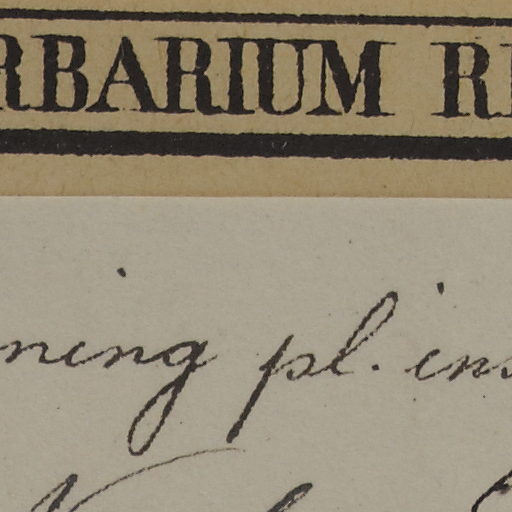 RBARIUM RE
ning pl. ins